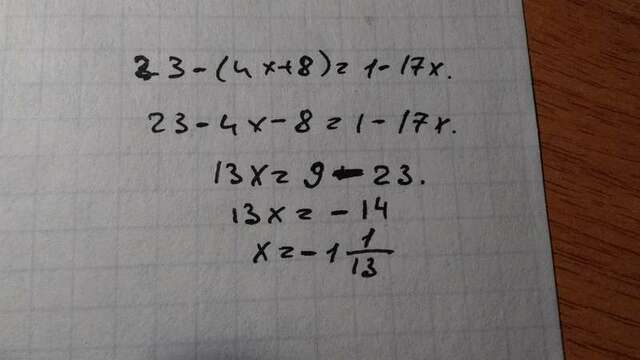 23-(4x+8)=1-17x.
23-4x-8=1-17x.
13x=9-23.
13x=-14
x=-1 1/13